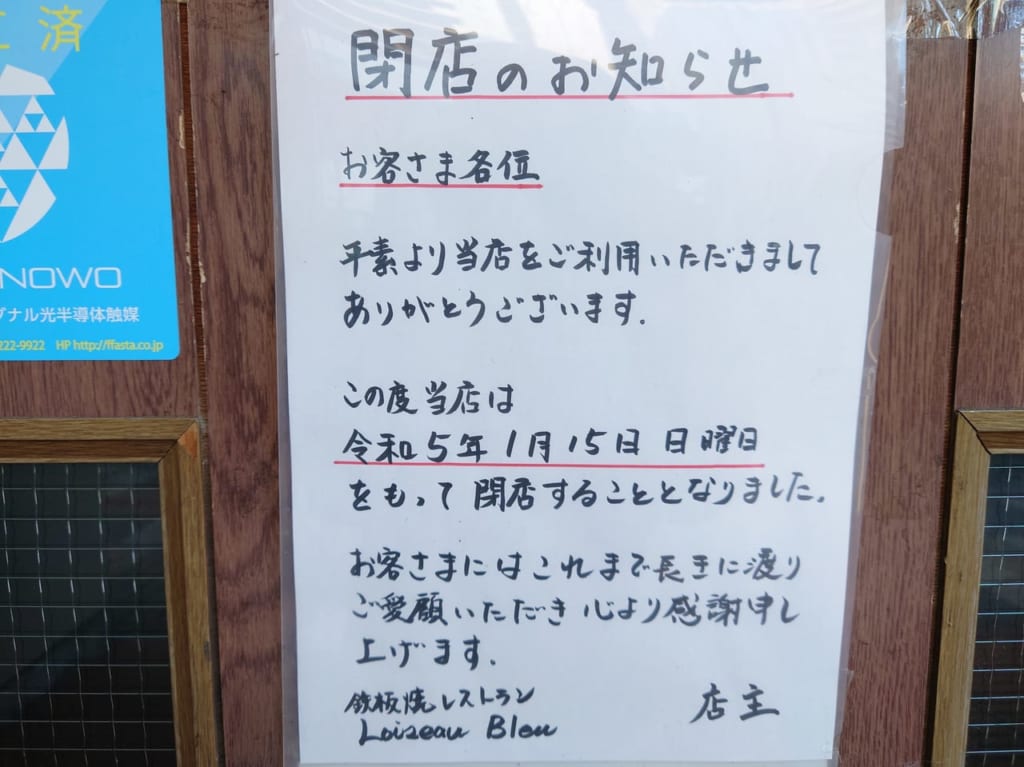 工済
NOWO
グナル光半導体触媒
222-9922 HP http://ffasta.co.jp
閉店のお知らせ
お客さま各位
平素より当店をご利用いただきまして
ありがとうございます.
この度当店は
令和5年1月15日 日曜日
をもって閉店することとなりました.
お客さまにはこれまで長きに渡り
ご愛顧いただき心より感謝申し
上げます.
鉄板焼レストラン
Loiseau Bleu
店主